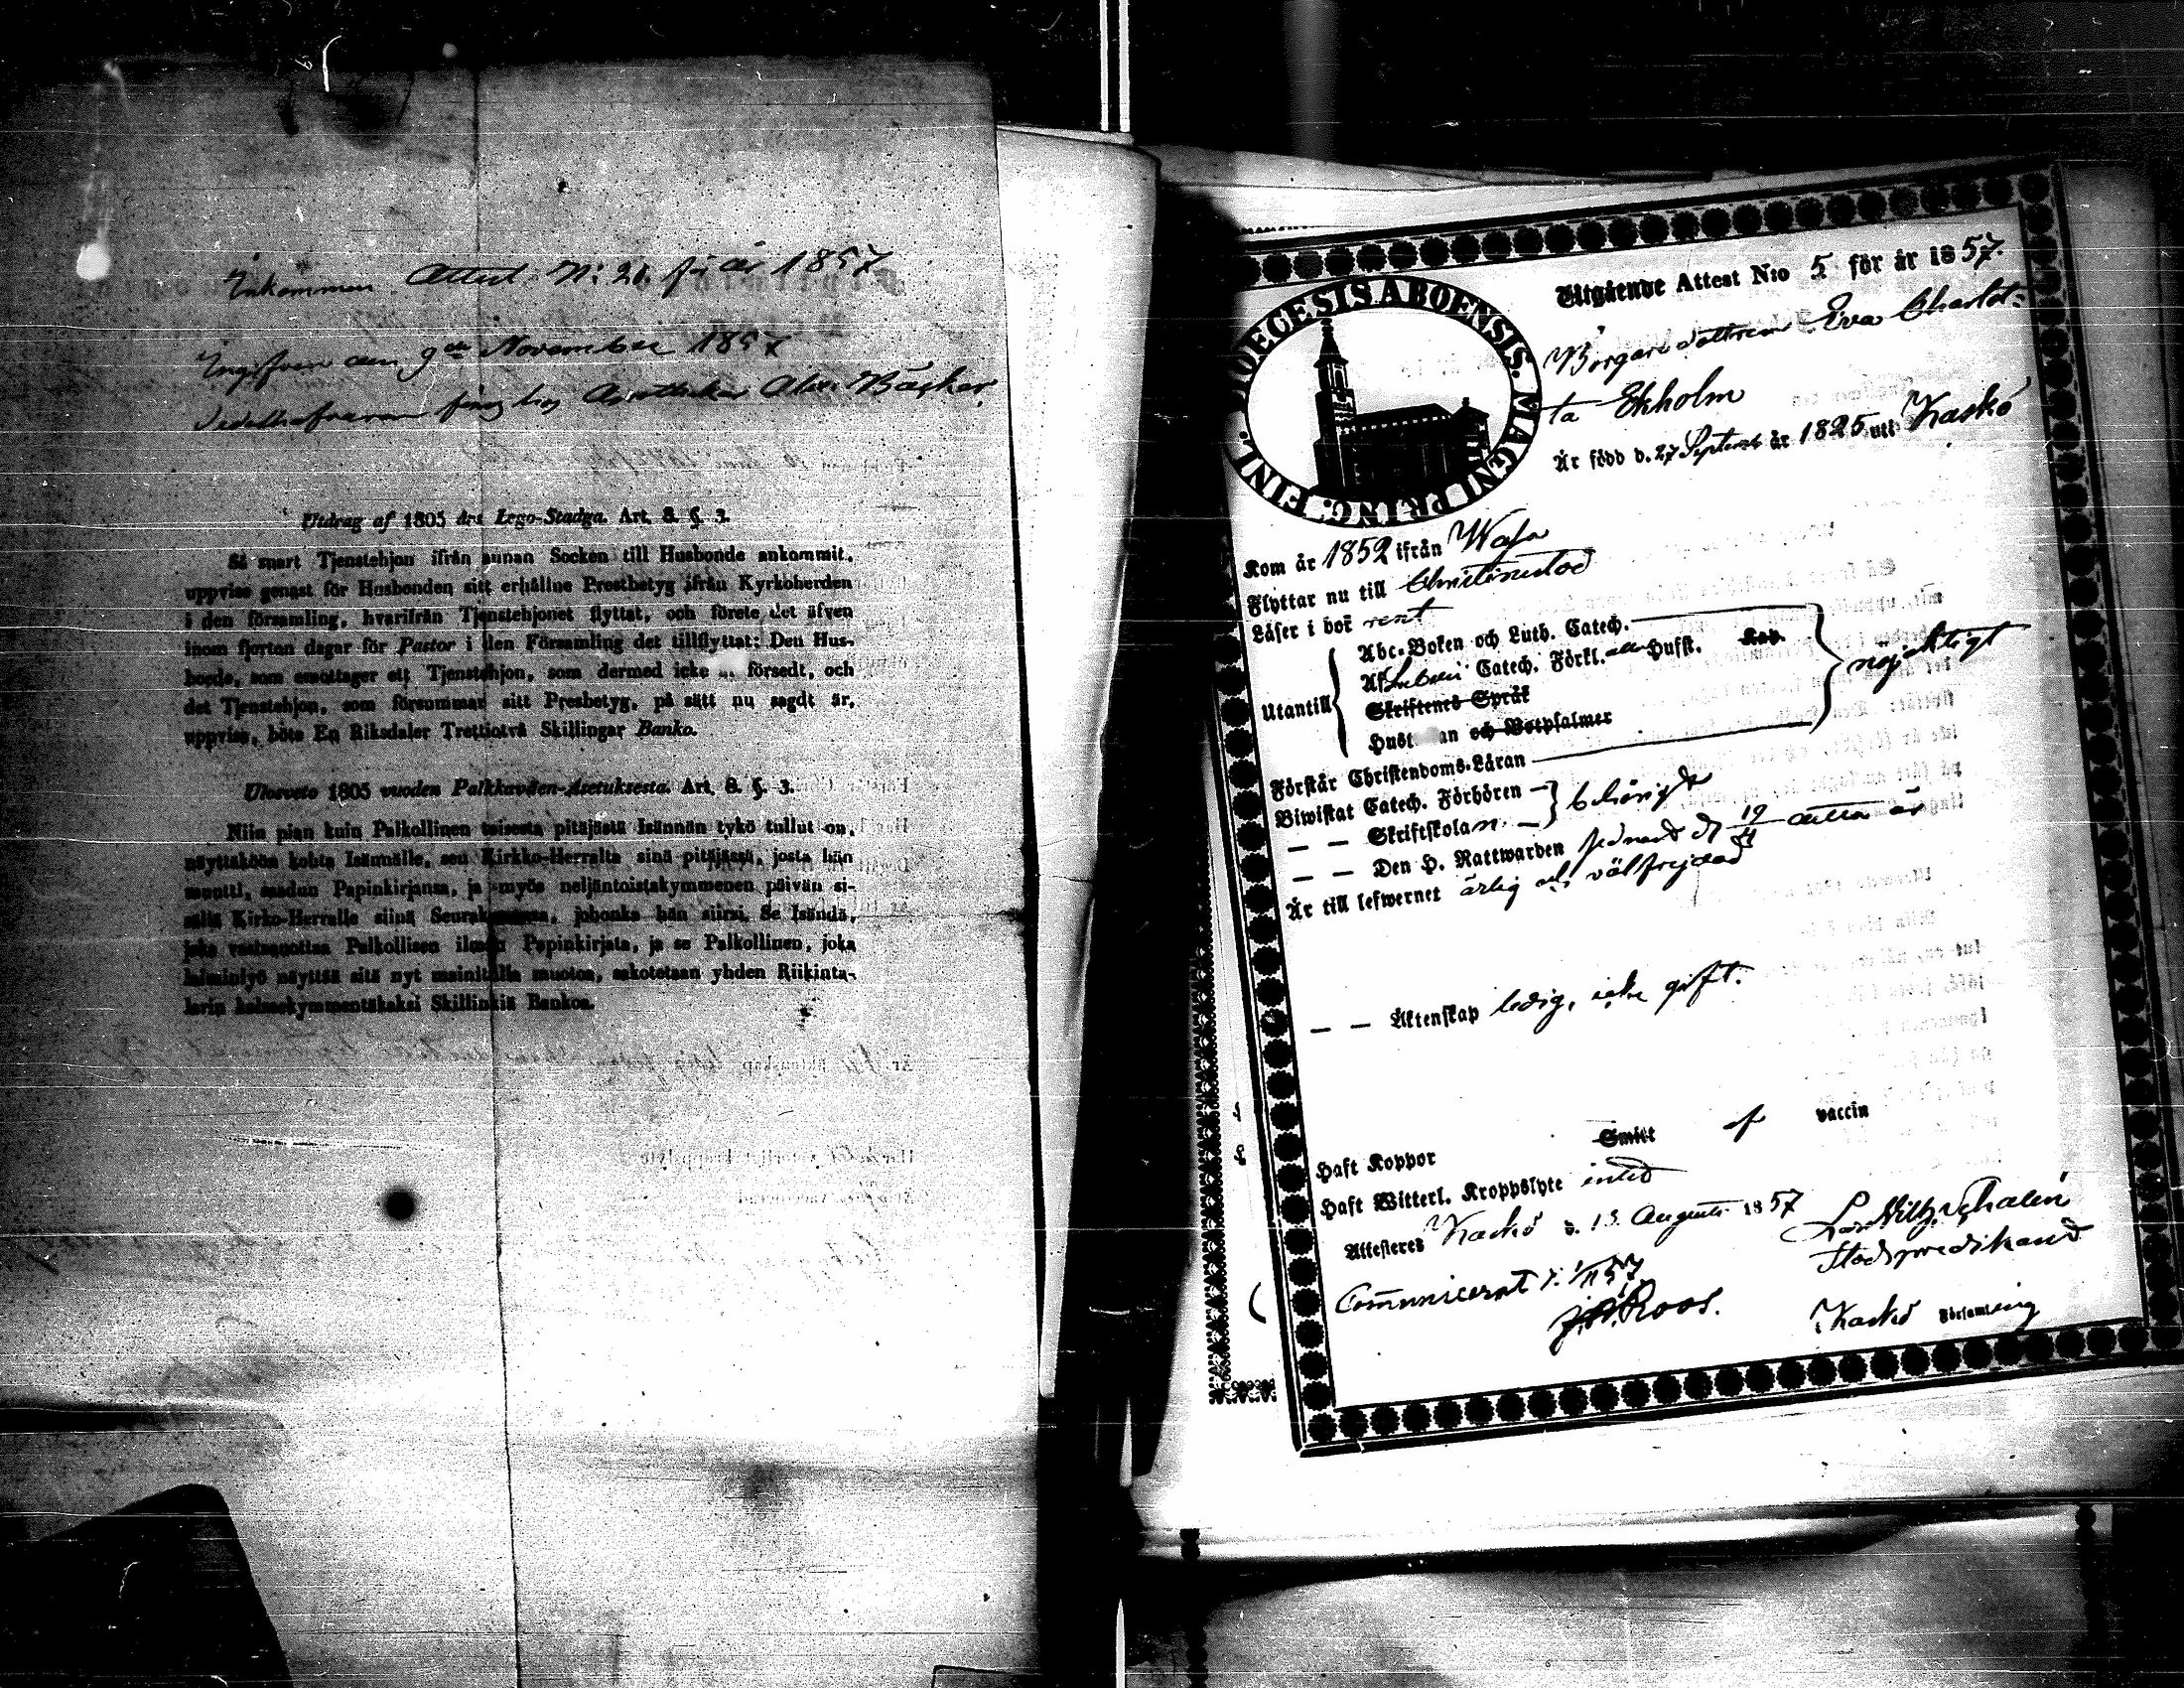 Inkommen Attest N: 21 för år 1857
Ingifven den 9de November 1857
Apothekar Alex. Bäcker
Utdrag af 1805 års Lego-Stadga. Art. 8. §. 3.
Så snart Tjenstehjon ifrån annan Socken till Husbonde ankommit,
uppvise genast för Husbonden sitt erhållne Prestbetyg ifrån Kyrkoherden
i den församling, hvarifrån Tjenstehjonet flyttat, och förete det äfven
inom fjorton dagar för Pastor i den Församling det tillflyttat: Den Hus-
bonde, som emottager ett Tjenstehjon, som dermed icke är försedt, och
det Tjenstehjon, som försummar sitt Presbetyg, på sätt nu sagdt är,
uppvisa, böte En Riksdaler Trettiotvå Skillingar Banko.
Ulosveto 1805 vuoden Palkkaväen-Asetuksesta. Art. 8. §. 3.
Niin pian kuin Palkollinen toisesta pitäjästä Isännän tykö tullut on,
näyttäköön kohta Isännälle, sen Kirkko-Herralta sinä pitäjässä, josta hän
muutti, saadun Papinkirjansa, ja myös neljäntoistakymmenen päivän si-
sällä Kirko-Herralle siinä Seurakunnassa, johonka hän siirsi. Se Isändä,
joka vastaanottaa Palkollisen ilman Papinkirjata, ja se Palkollinen, joka
laiminlyö näyttää sitä nyt mainitulla muotoa, sakotetaan yhden Riikinta-
lerin kolmekymmentäkaksi Skillinkiä Bankoa.
DIOECESIS ABOENSIS. MAGNI PRINC. FINL.
Utgående Attest N:o 5 för år 1857.
Borgare dottren Eva Charlot-
ta Ekholm
Är född d. 27 Septemb år 1825 uti Kaskö
Kom år 1852 ifrån Wasa
Flyttar nu till Christinestad
Läser i bok rent
Utantill
Abc-Boken och Luth. Catech.
Af Catech. Förkl. Hufst. Kap.
Skriftenes Språk
Hust an och Botpsalmer
nöjaktigt
Förstår Christendoms-Läran
Biwistat Catech. Förhören
— — Skriftskolan.
behörigt
— — Den H. Nattwarden sednast d 19/4 detta år
Är till lefwernet ärlig och välfrejdad
— — Äktenskap ledig, icke gift.
Haft Koppor Smitt af vaccin
Haft Witterl. Kroppslyte intet
Attesteres Kaskö d. 13 Augusti 1857
Stadspredikand
Communicerat d. 1/11 57
J.A. Roos.
Kaskö Församling